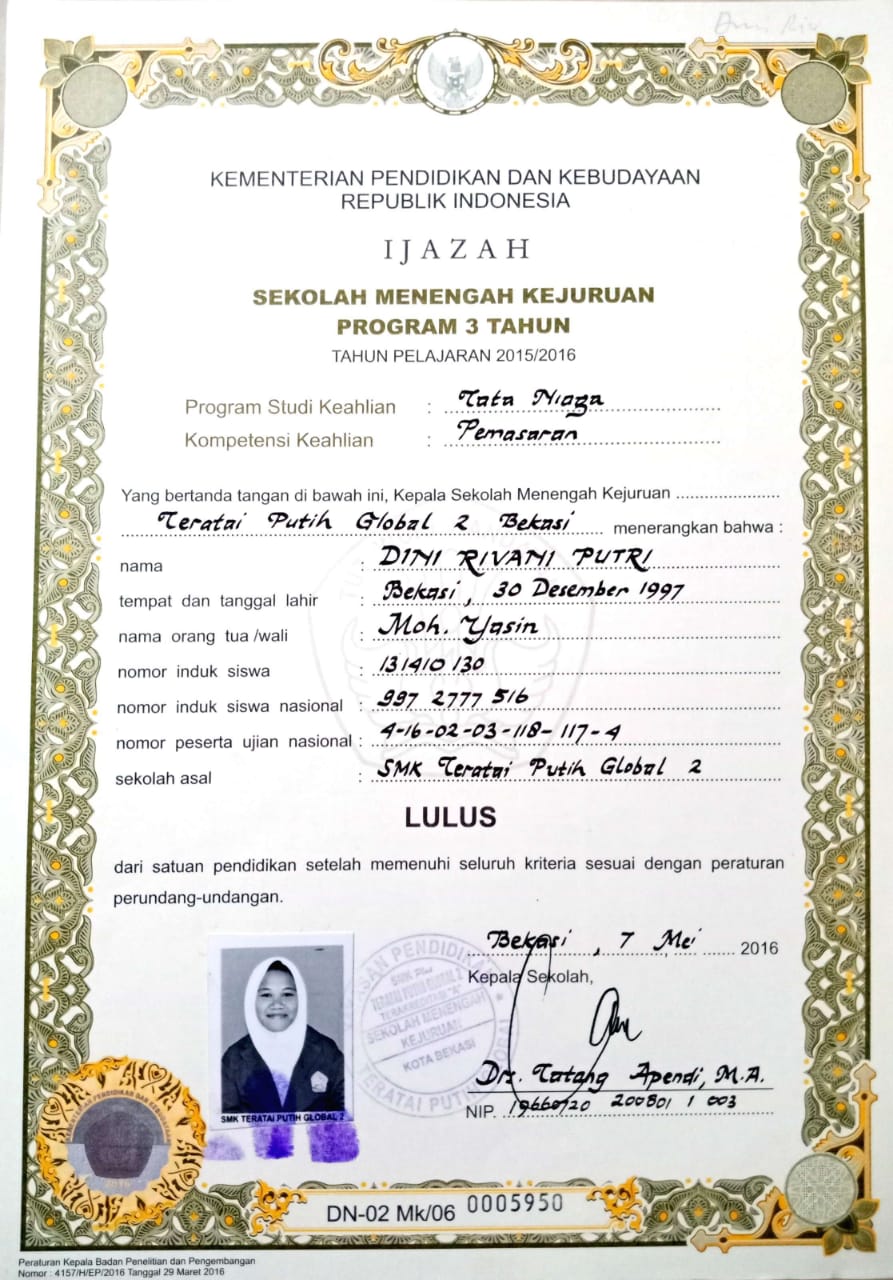 KEMENTERIAN PENDIDIKAN DAN KEBUDAYAAN
REPUBLIK INDONESIA
IJAZAH
SEKOLAH MENENGAH KEJURUAN
PROGRAM 3 TAHUN
TAHUN PELAJARAN 2015/2016
Program Studi Keahlian : Tata Niaga
Kompetensi Keahlian : Pemasaran
Yang bertanda tangan di bawah ini, Kepala Sekolah Menengah Kejuruan
Teratai Putih Global 2 Bekasi menerangkan bahwa :
nama : DINI RIVANI PUTRI
tempat dan tanggal lahir : Bekasi, 30 Desember 1997
nama orang tua /wali : Moh. Yasin
nomor induk siswa : 131410 130
nomor induk siswa nasional : 997 2777 516
nomor peserta ujian nasional : 4-16-02-03-118-117-4
sekolah asal : SMK Teratai Putih Global 2
LULUS
dari satuan pendidikan setelah memenuhi seluruh kriteria sesuai dengan peraturan
perundang-undangan.
Bekasi, 7 Mei 2016
Kepala Sekolah,
YAYASAN PENDIDIKAN
TERATAI PUTIH GLOBAL 2
TERAKREDITASI "A"
SEKOLAH MENENGAH
KEJURUAN
KOTA BEKASI
TERATAI PUTIH GLOBAL
SMK TERATAI PUTIH GLOBAL 2
Drs. Tatang Apendi, M.A.
NIP. 19660720 200801 1 003
DN-02 Mk/06 0005950
Peraturan Kepala Badan Penelitian dan Pengembangan
Nomor : 4157/H/EP/2016 Tanggal 29 Maret 2016